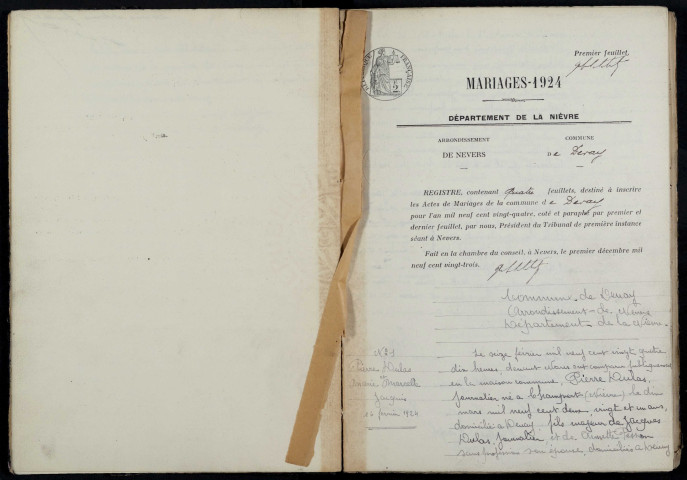 Premier feuillet,
MARIAGES-1924
DÉPARTEMENT DE LA NIÈVRE
ARRONDISSEMENT
DE NEVERS
COMMUNE
De Devay
REGISTRE, contenant Quatre feuillets, destiné à inscrire
les Actes de Mariages de la commune de Devay
pour l'an mil neuf cent vingt-quatre, coté et paraphé par premier et
dernier feuillet, par nous, Président du Tribunal de première instance
séant à Nevers.
Fait en la chambre du conseil, à Nevers, le premier décembre mil
neuf cent vingt-trois.
Commune de Devay
Arrondissement de Nevers
Département de la Nièvre
N° 1
Pierre
Marie
Jacquis
16 février 1924
Le seize février mil neuf cent vingt quatre
dix heures, devant Nous ont comparu publiquement
en la maison commune, Pierre
journalier né à Champvert (Nièvre) le dix
mars mil neuf cent deux, vingt et un ans,
domicilié à Devay fils majeur de Jacques
journalier et de
sans profession son épouse, domiciliés à Devay